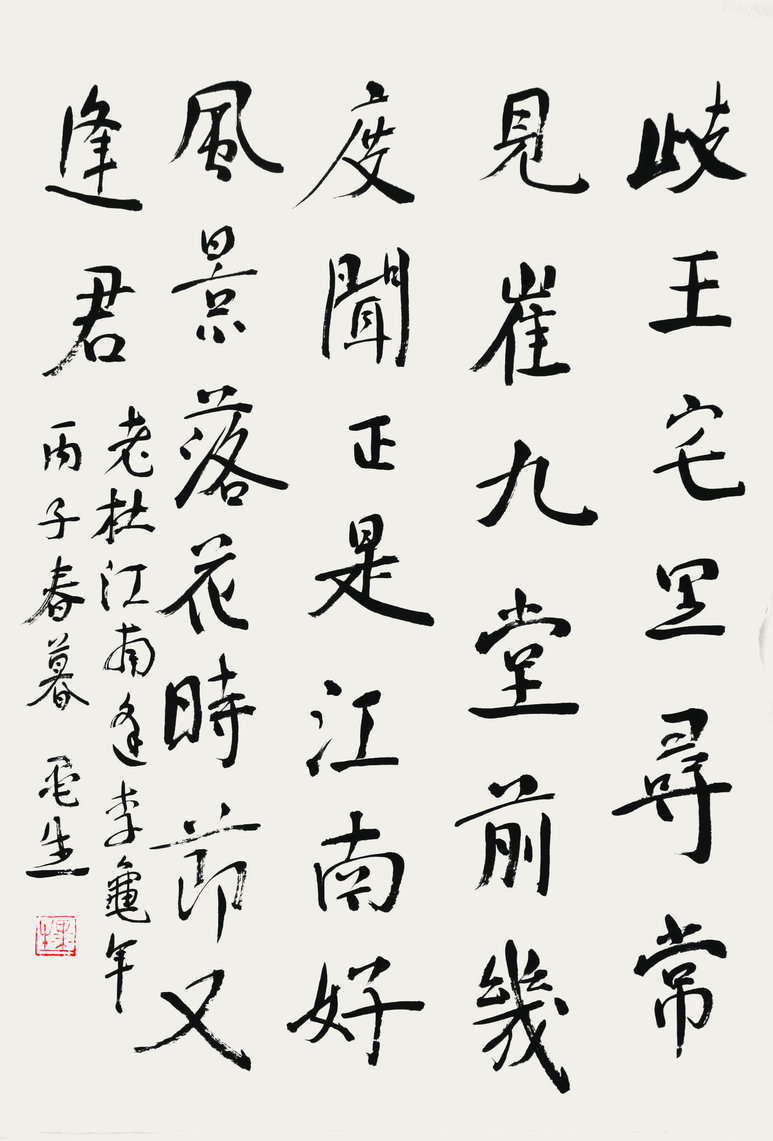 岐王宅里尋常
見崔九堂前幾
度聞正是江南好
風景落花時節又
逢君
老杜江南逢李龜年
丙子春暮 生